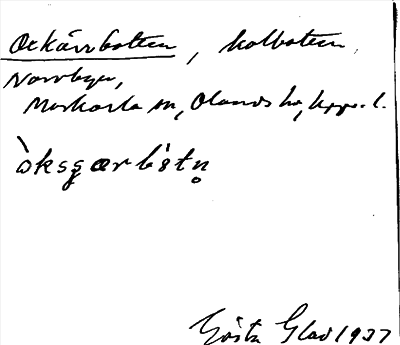 Oxkärrbotten, kolbotten,
Norrbyn,
Morkarla sn, Olands hd, Uppl.
Gösta Glad 1937